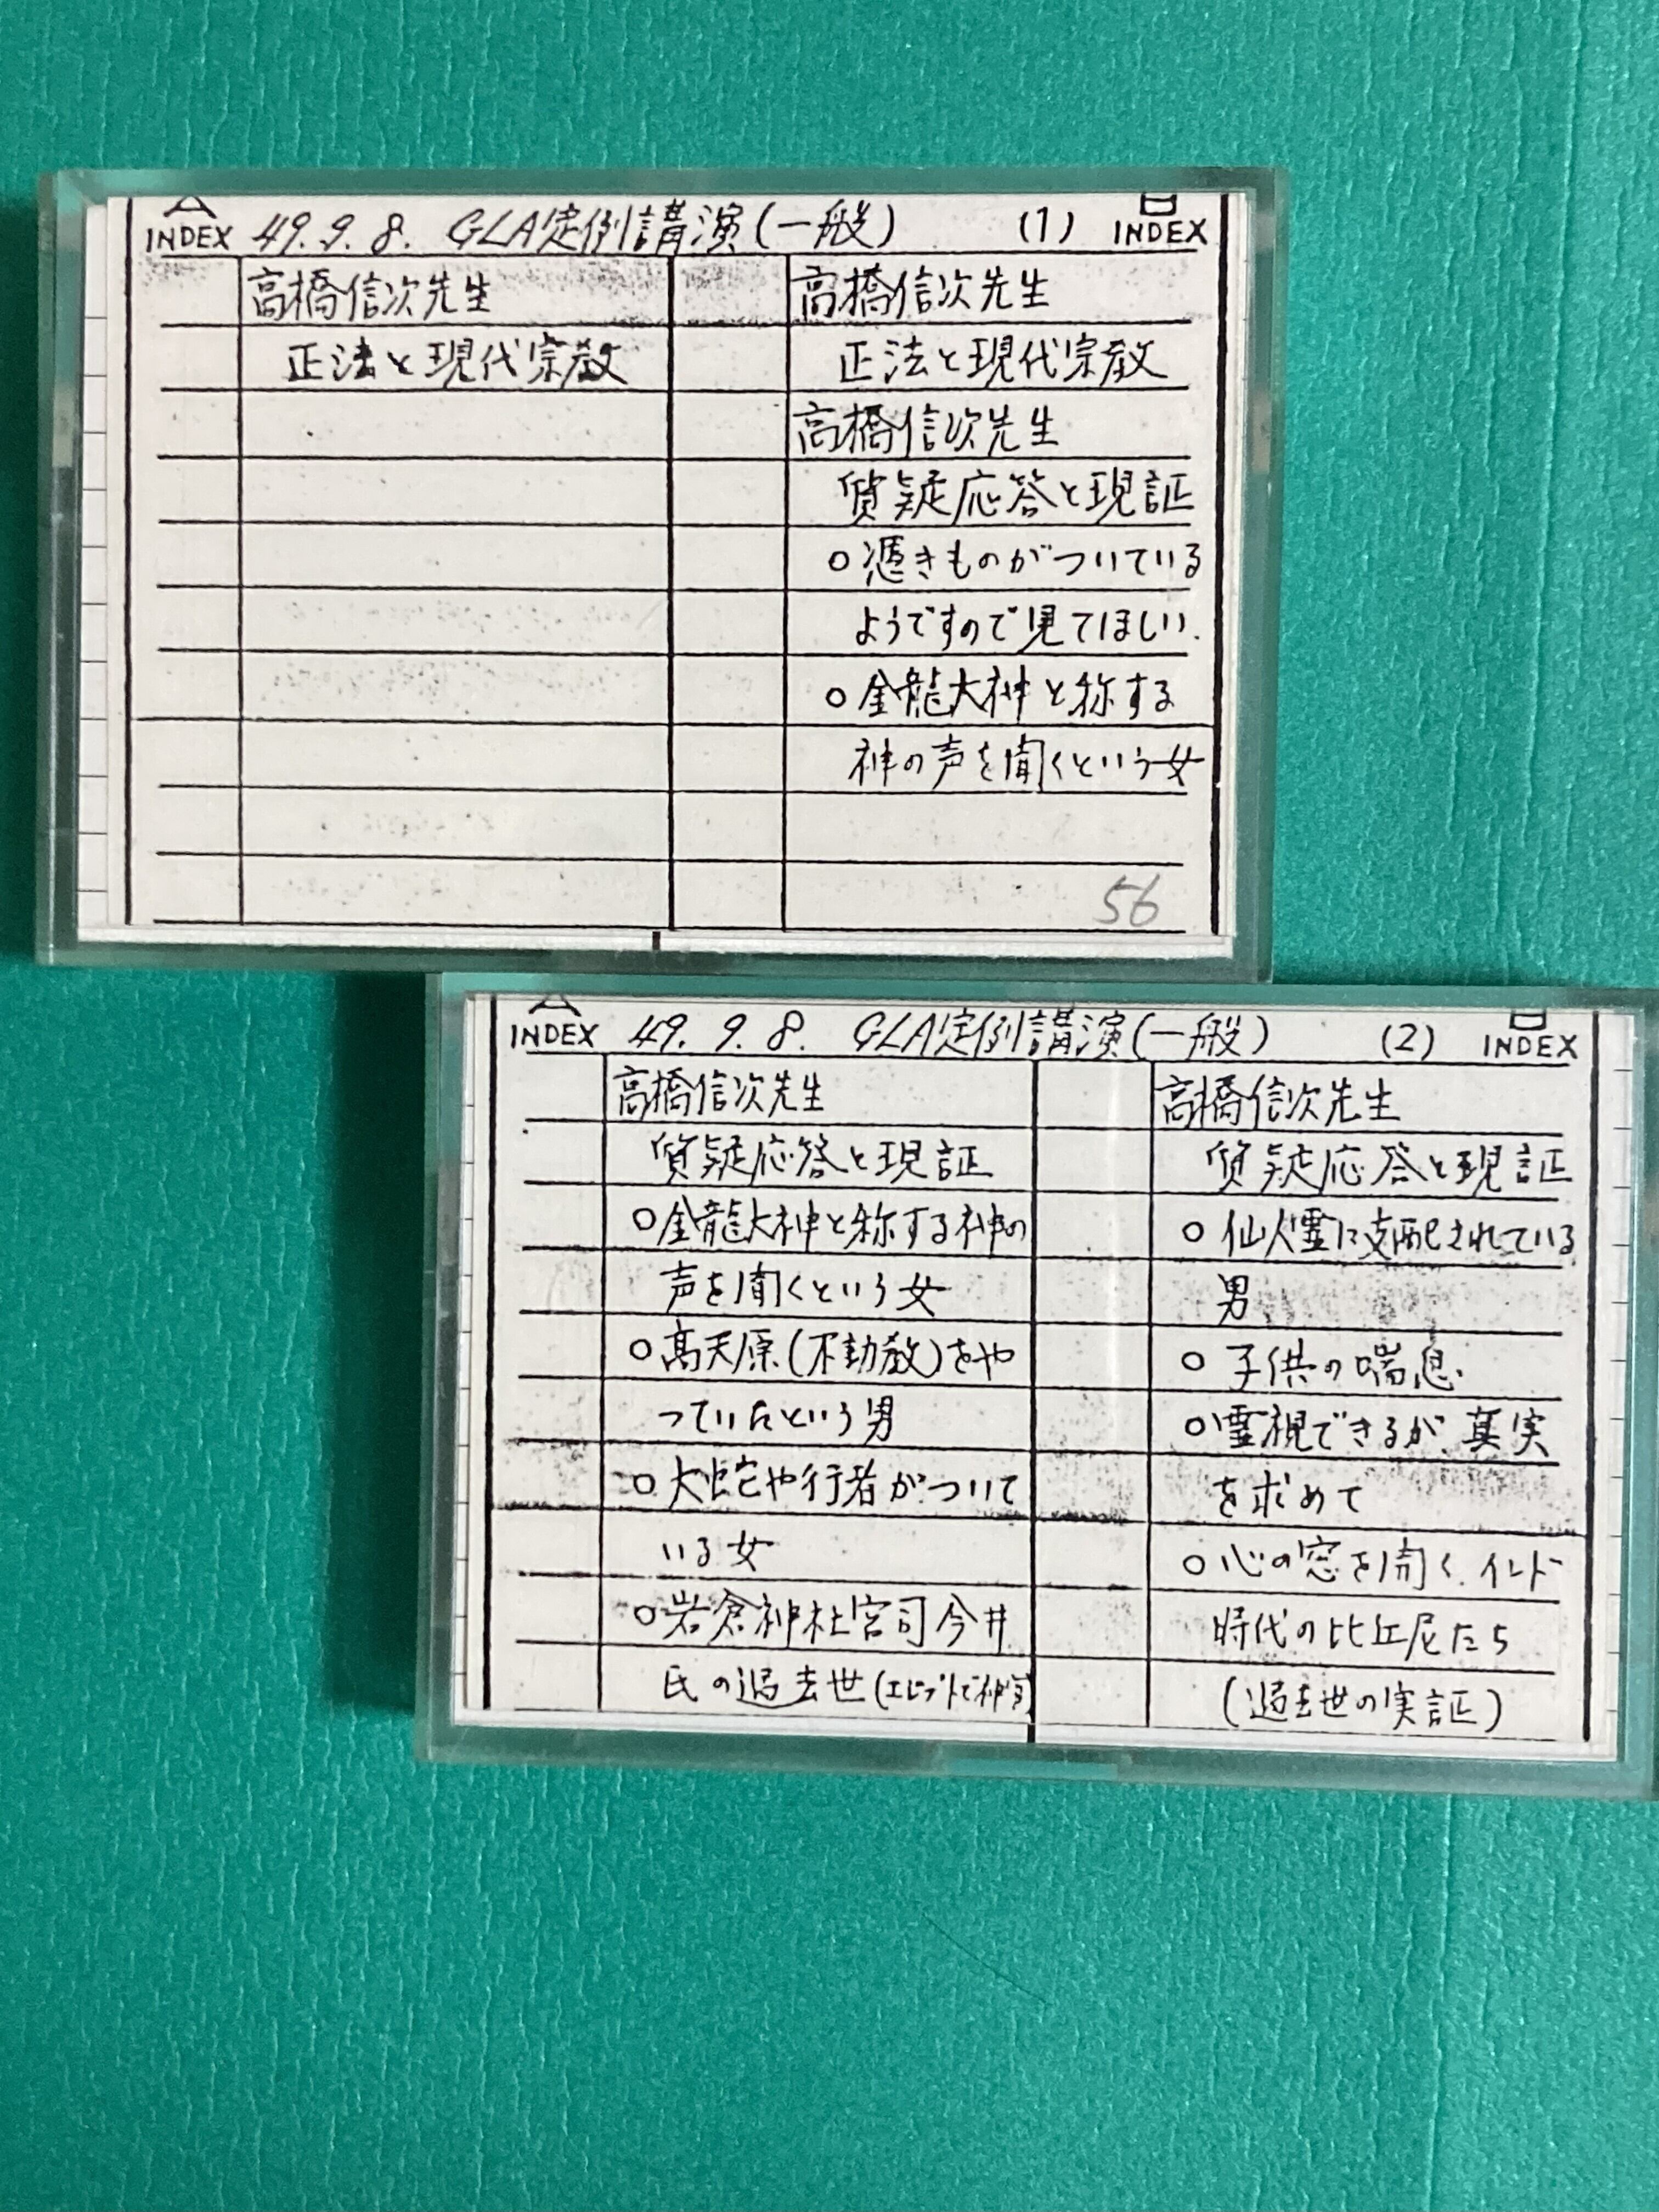 A INDEX 49.9.8. GLA定例講演(一般) (1) B INDEX
高橋信次先生
正法と現代宗教
高橋信次先生
正法と現代宗教
高橋信次先生
質疑応答と現証
○憑きものがついている
ようですので見てほしい.
○金龍大神と称する
神の声を聞くという女
56
A INDEX 49.9.8. GLA定例講演(一般) (2) B INDEX
高橋信次先生
質疑応答と現証
○金龍大神と称する神の
声を聞くという女
○高天原(不動教)をや
っていたという男
○大蛇や行者がついて
いる女
○岩倉神社宮司今井
氏の過去世(エジプトで神官)
高橋信次先生
質疑応答と現証
○仙人霊に支配されている
男
○子供の喘息.
○霊視できるが、真実
を求めて
○心の窓を開く.インド
時代の比丘尼たち
(過去世の実証)